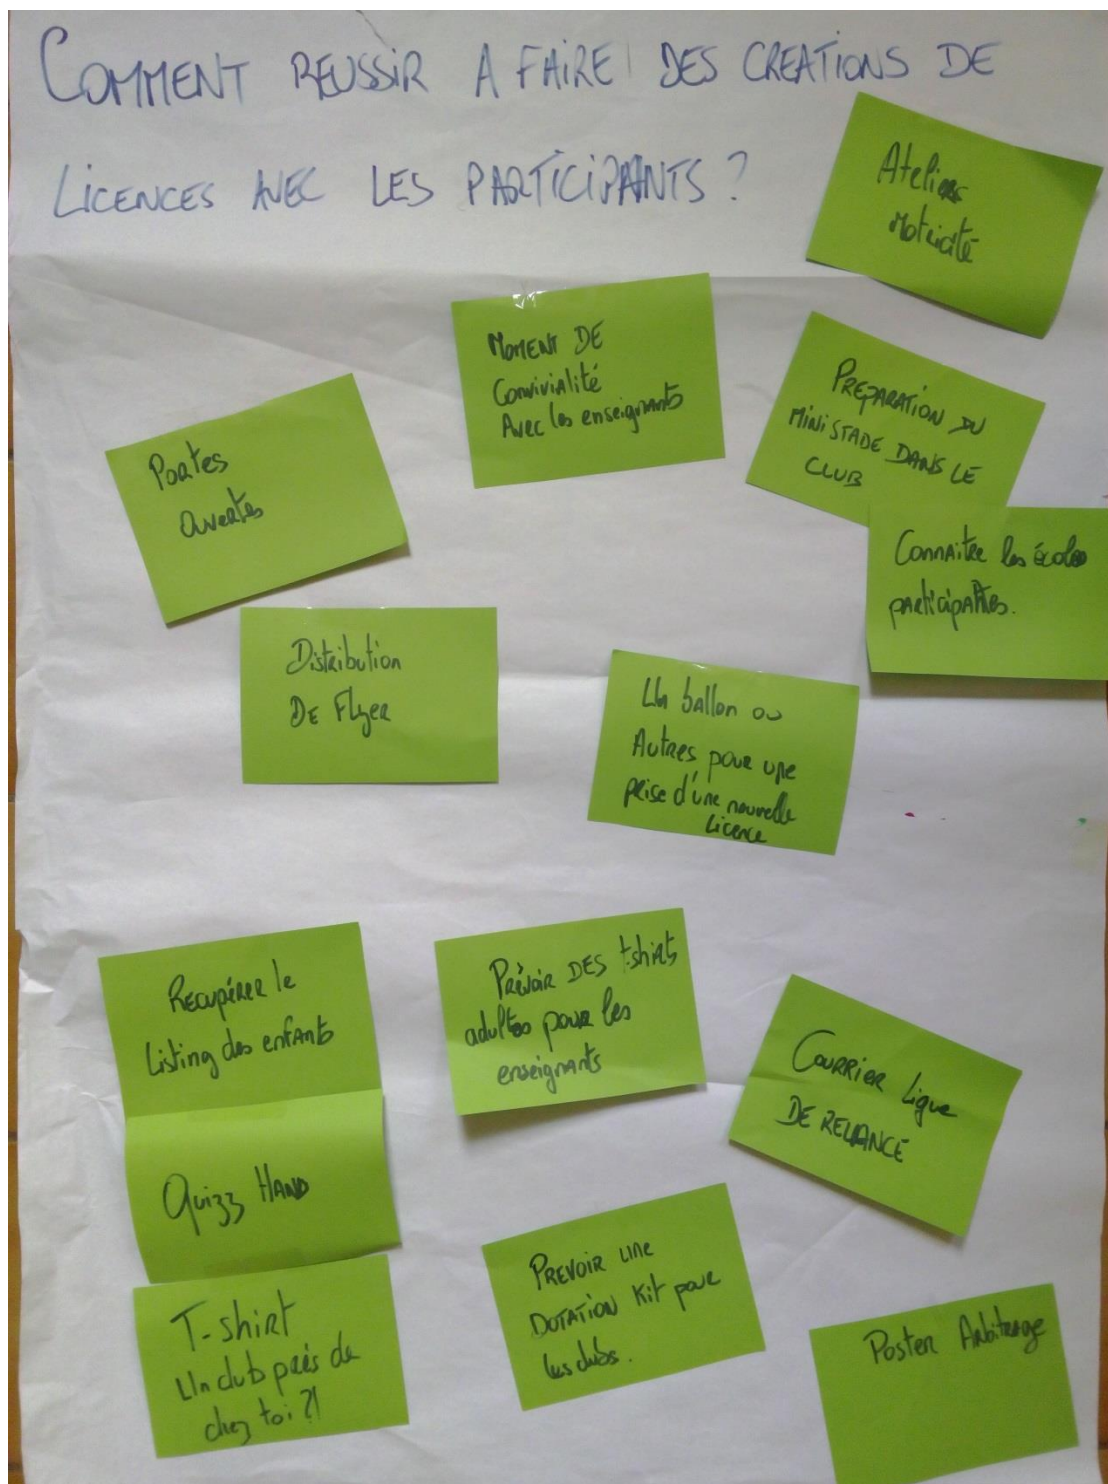 COMMENT REUSSIR A FAIRE DES CREATIONS DE
LICENCES AVEC LES PARTICIPANTS ?
Ateliers
Motricité
MOMENT DE
Convivialité
Avec les enseignants
PREPARATION DU
MINISTADE DANS LE
CLUB
Portes
Ouvertes
Connaitre les écoles
participantes.
Distribution
DE Flyer
Un ballon ou
Autres pour une
prise d'une nouvelle
Licence
Recupérer le
Listing des enfants
Prévoir DES t-shirts
adultes pour les
enseignants
COURRIER Ligue
DE RELANCE
Quizz HAND
PREVOIR UNE
DOTATION Kit pour
les clubs.
T-shirt
Un club près de
chez toi ?!
Poster Arbitrage